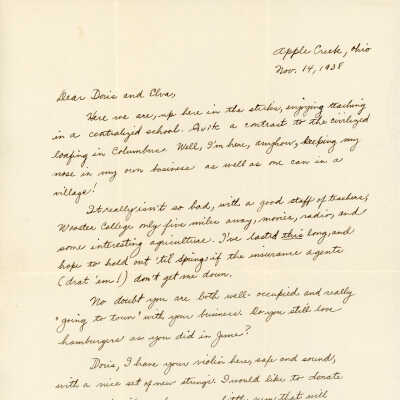 Apple Creek, Ohio
Nov. 14, 1938
Dear Doris and Elva,
Here we are, up here in the sticks, enjoying teaching
in a centralized school. Quite a contrast to the civilized
loafing in Columbus. Well, I'm here, anyhow, keeping my
nose in my own business as well as one can in a
village!
It really isn't so bad, with a good staff of teachers,
Wooster College only five miles away, movies, radio, and
some interesting agriculture. I've lasted this long, and
hope to hold out 'til spring if the insurance agents
(drat 'em!) don't get me down.
No doubt you are both well-occupied and really
"going to town" with your business. Do you still love
hamburgers as you did in June?
Doris, I have your violin here, safe and sound,
with a nice set of new strings. I would like to donate
that will